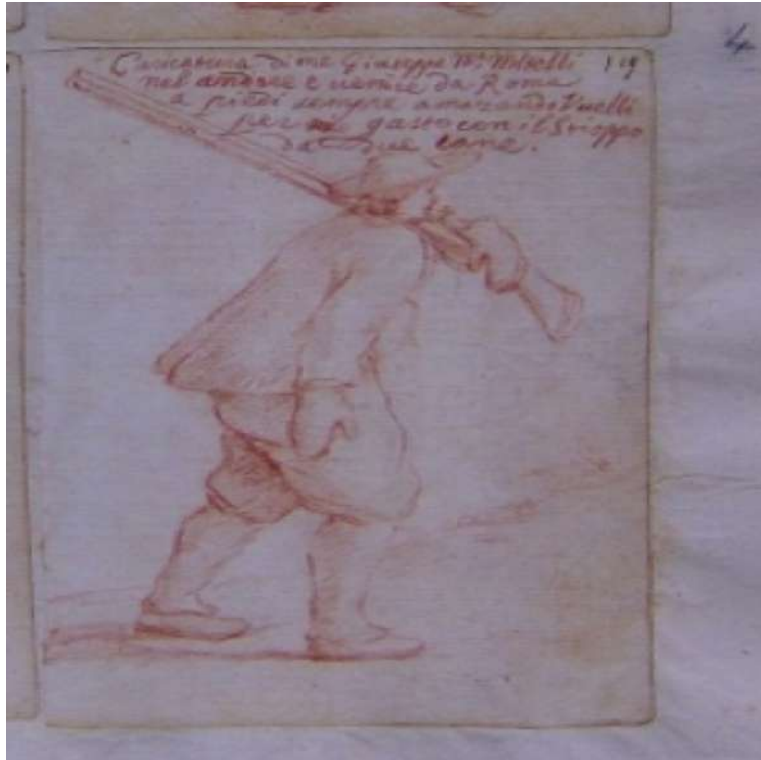 Caricatura di me Giuseppe M.ª Mitelli 119
nel andare e venire da Roma
a piedi sempre amazando Uccelli
per gusto con il Srioppo
da due cane.